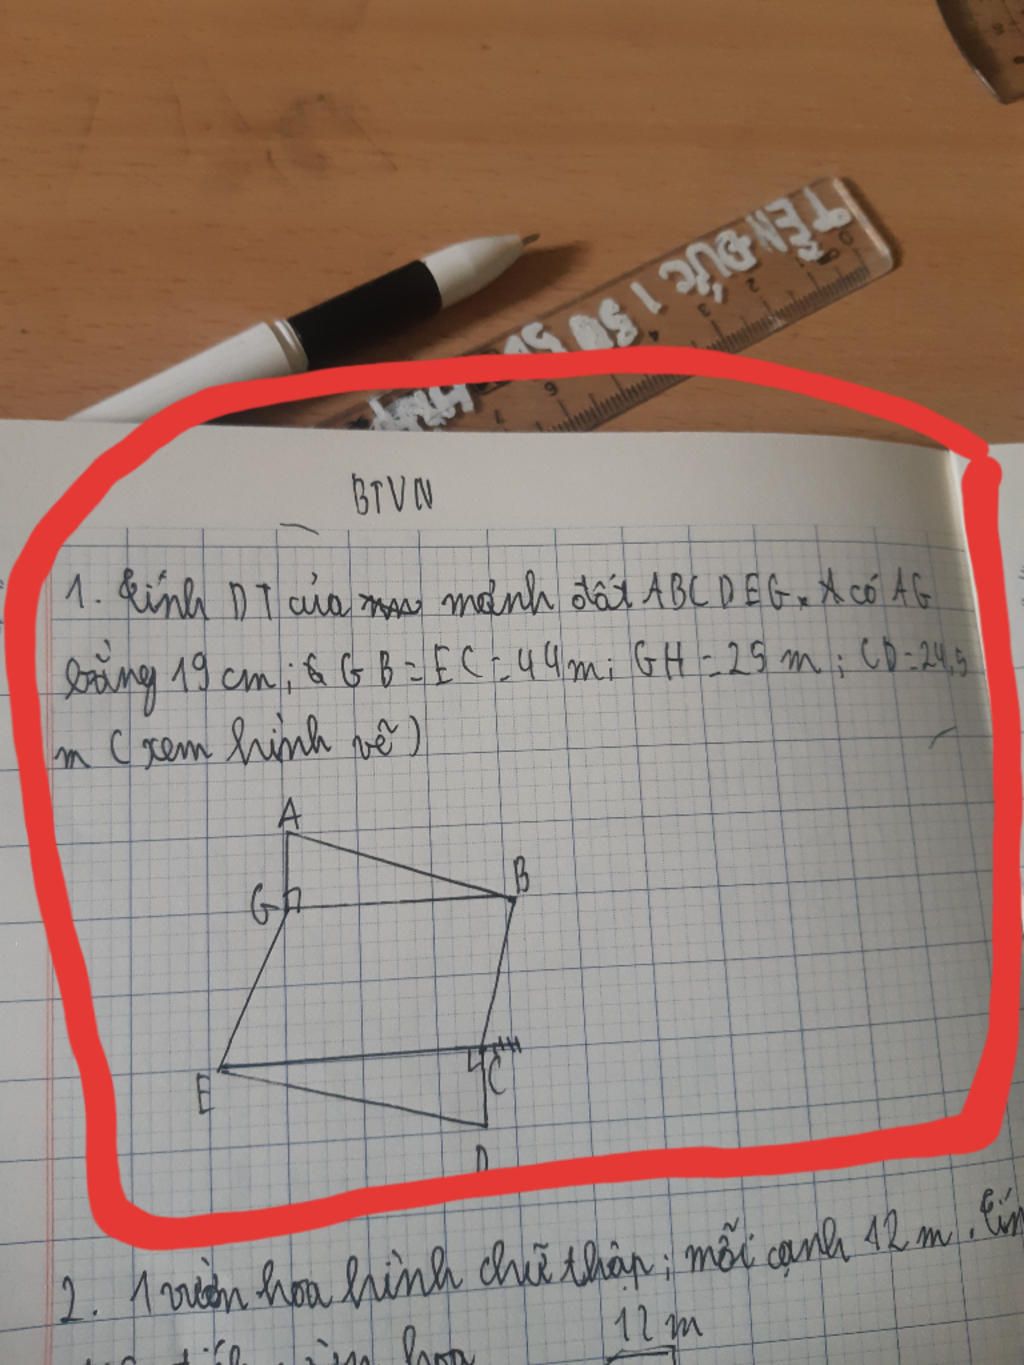 TIẾN ĐỨC 1
BTVN
1. tính DT của mảnh đất ABCDEG. A có AG
bằng 19 cm; GB = EC = 44 m; GH = 25 m; CD = 24,5
m (xem hình vẽ)
A
B
G
H
C
E
D
2. 1 vườn hoa hình chữ thập; mỗi cạnh 12 m.
12 m
hoa